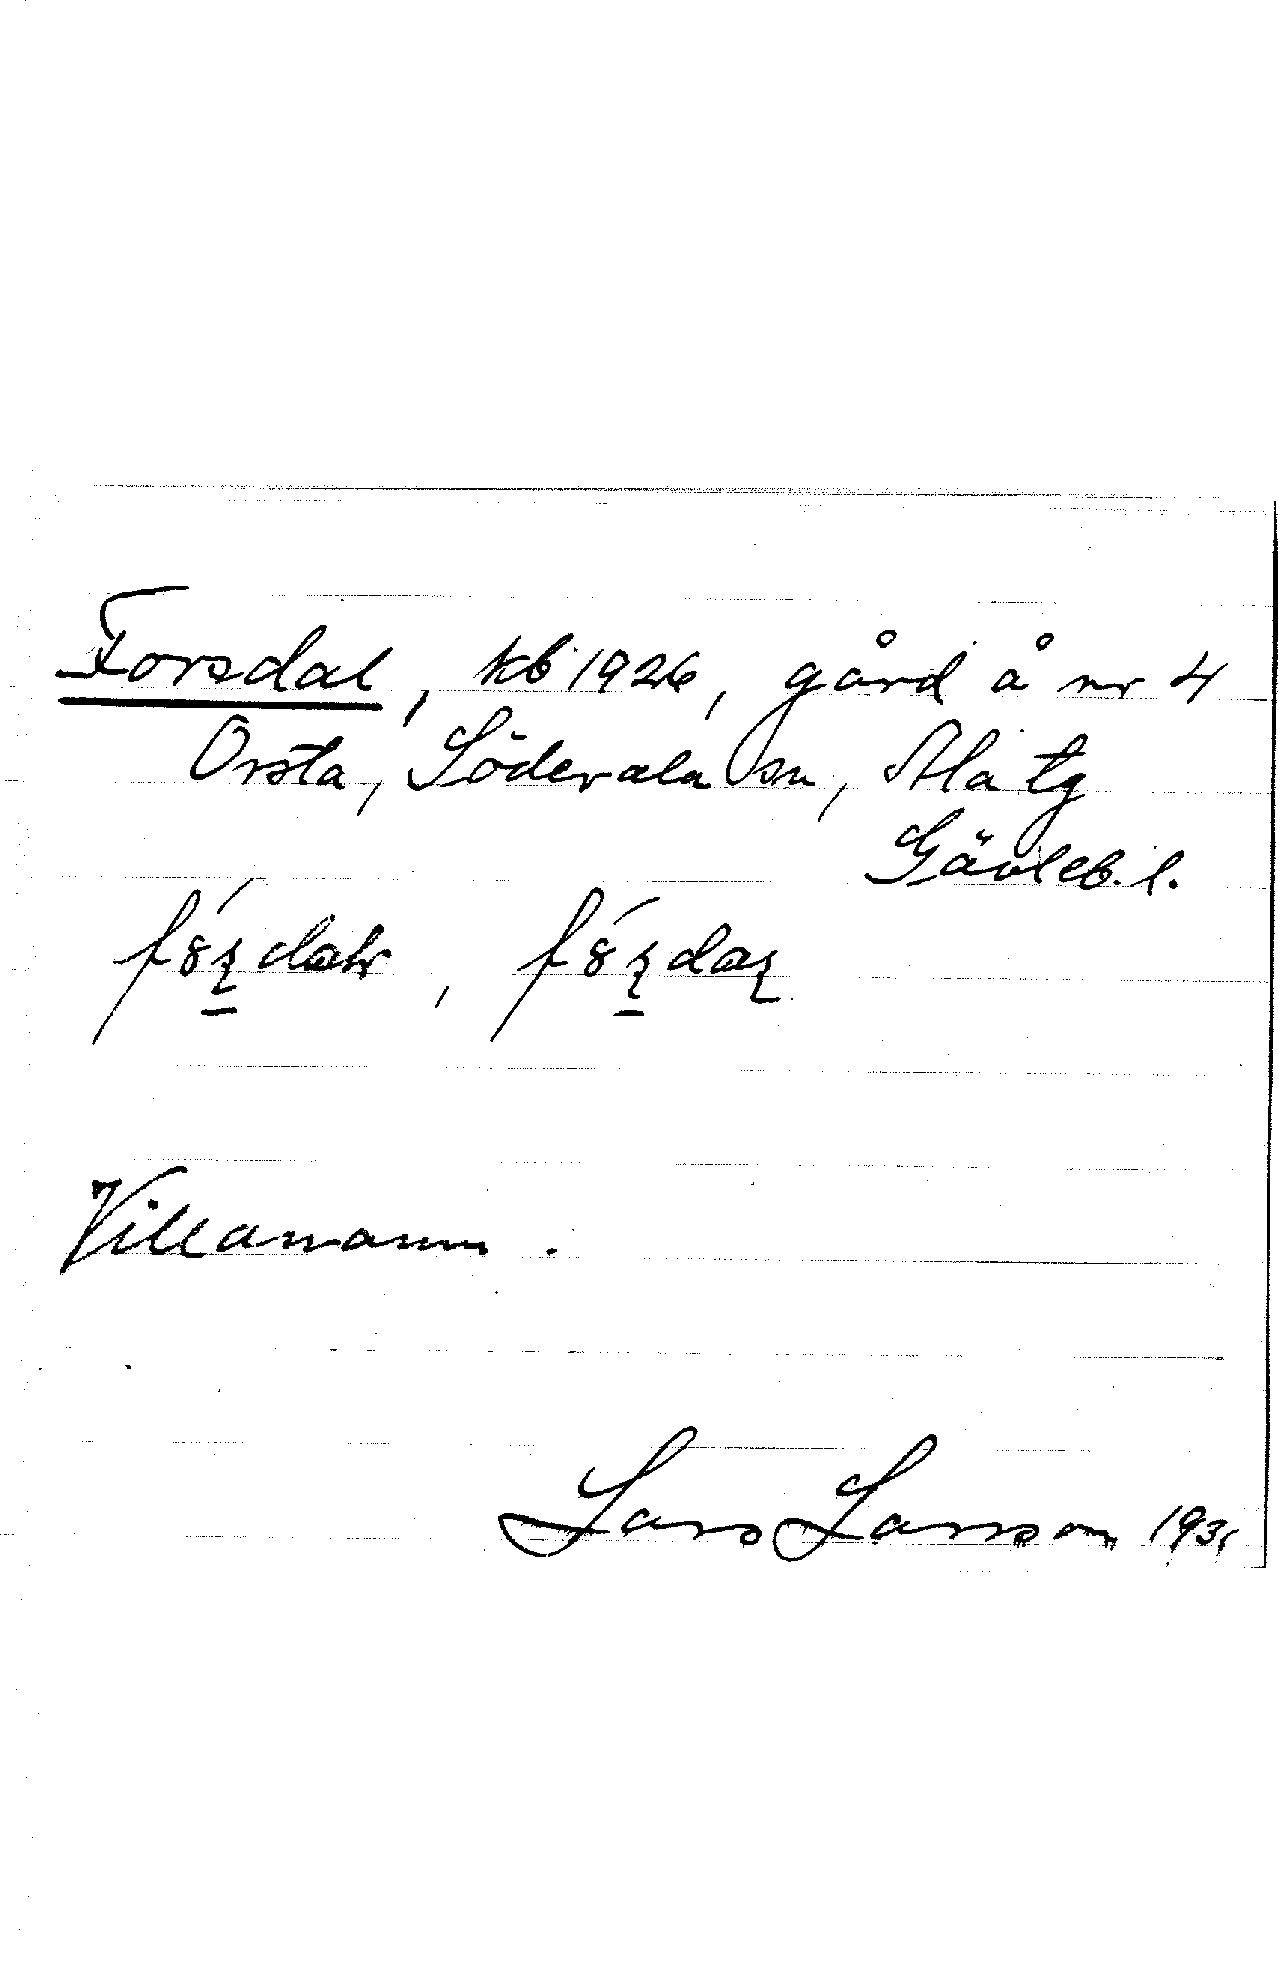 Forsdal, kb 1926, gård å nr 4
Orsta, Söderala sn, Ala tg
Gävleb. l.
Villanamn.
Lars Larsson 193